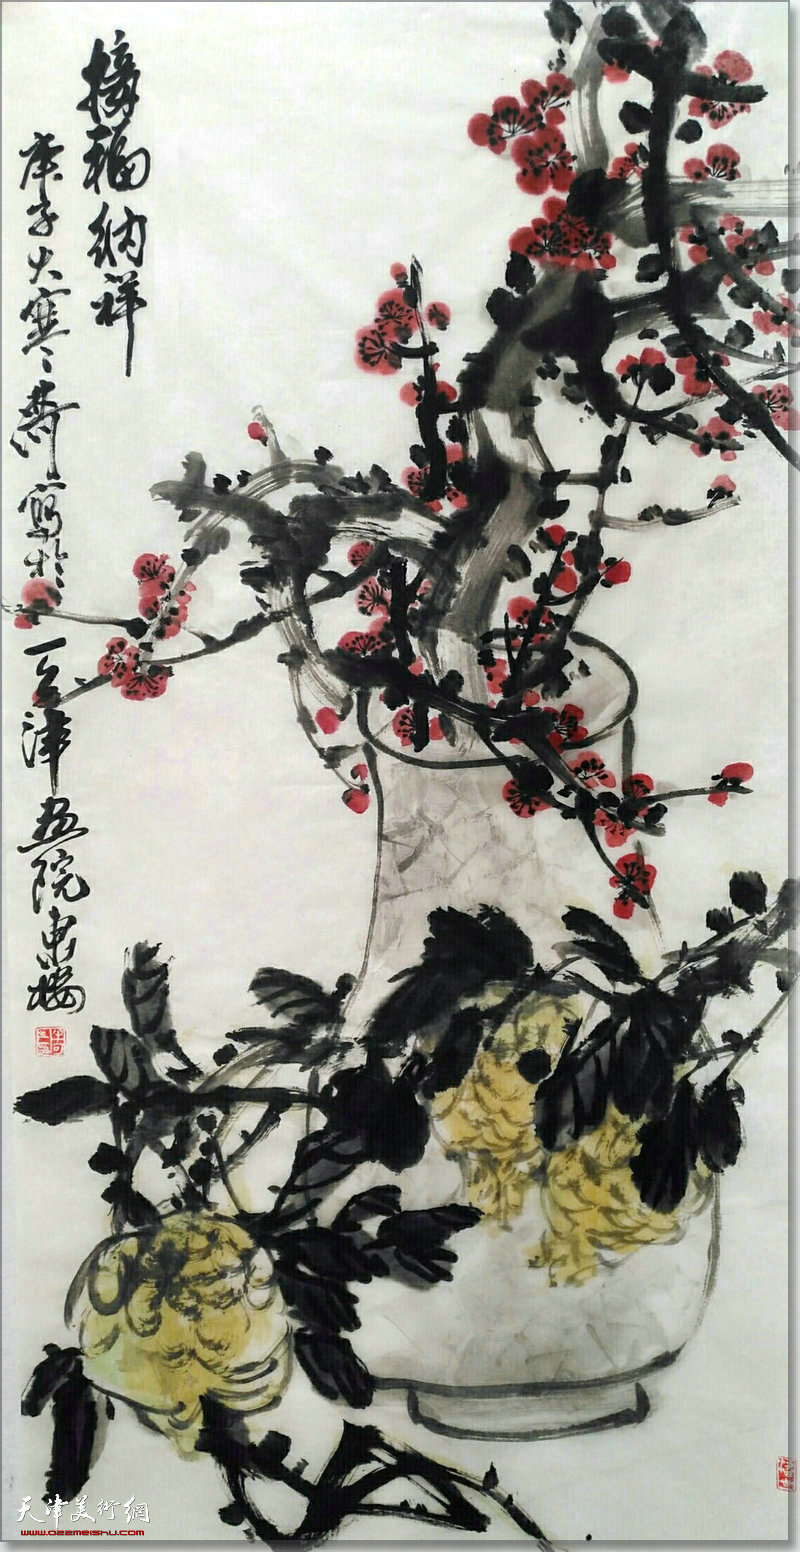 接福纳祥
庚子大寒寒齋写於
天津画院东楼
天津美術網
www.022meishu.com